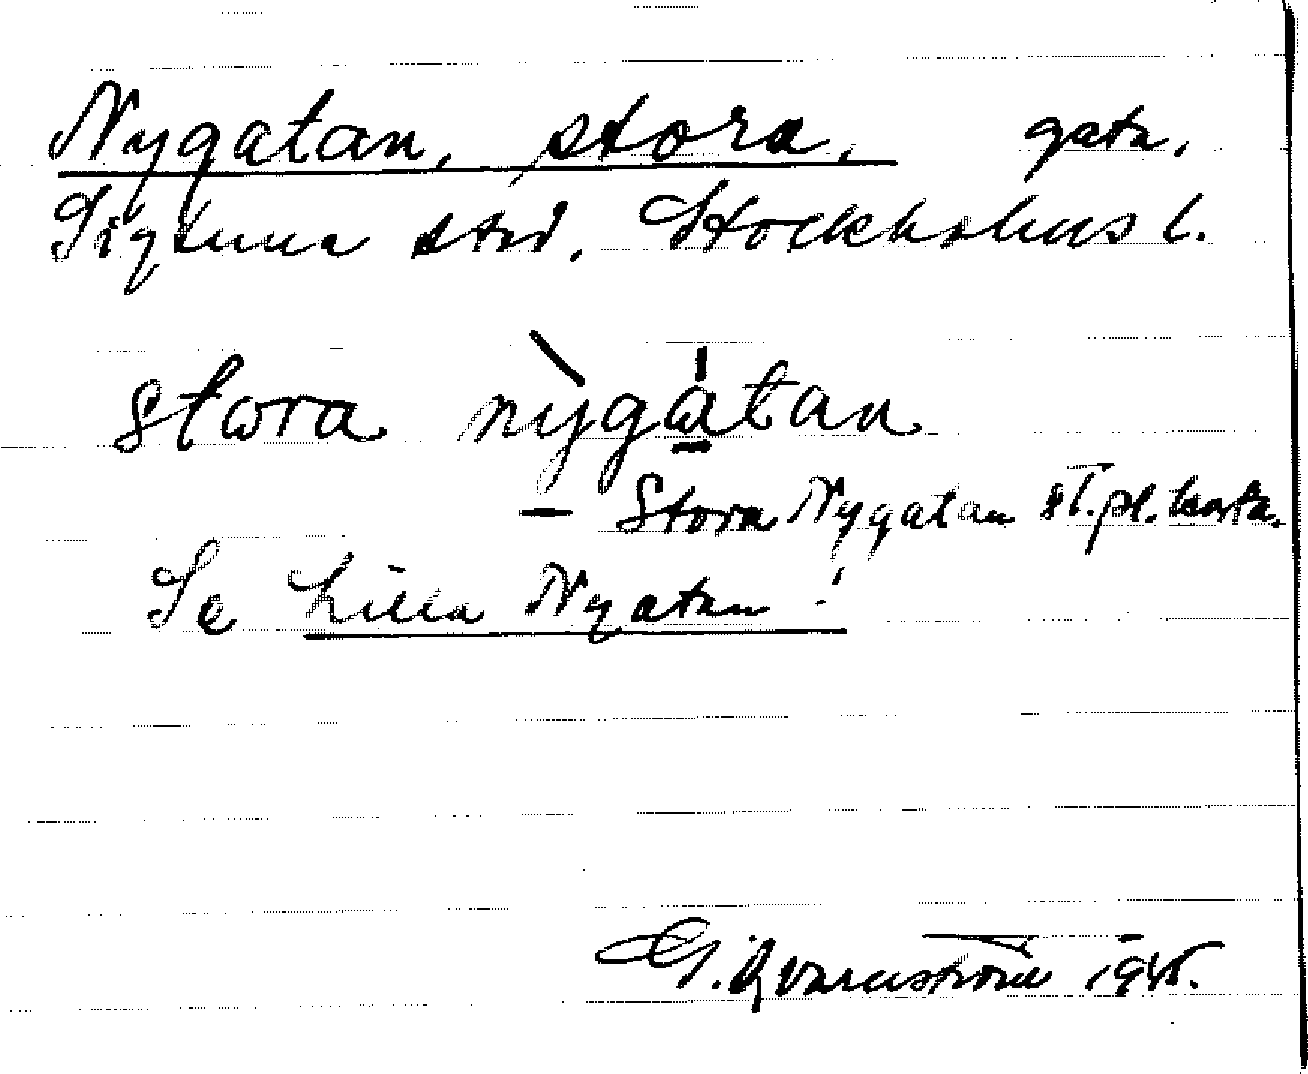 Nygatan, stora, gata,
Sigtuna stad, Stockholms l.
stωra nỳgátan
— Stora Nygatan st.pl. karta.
Se Lilla Nygatan!
G. Qvarnström 1945.